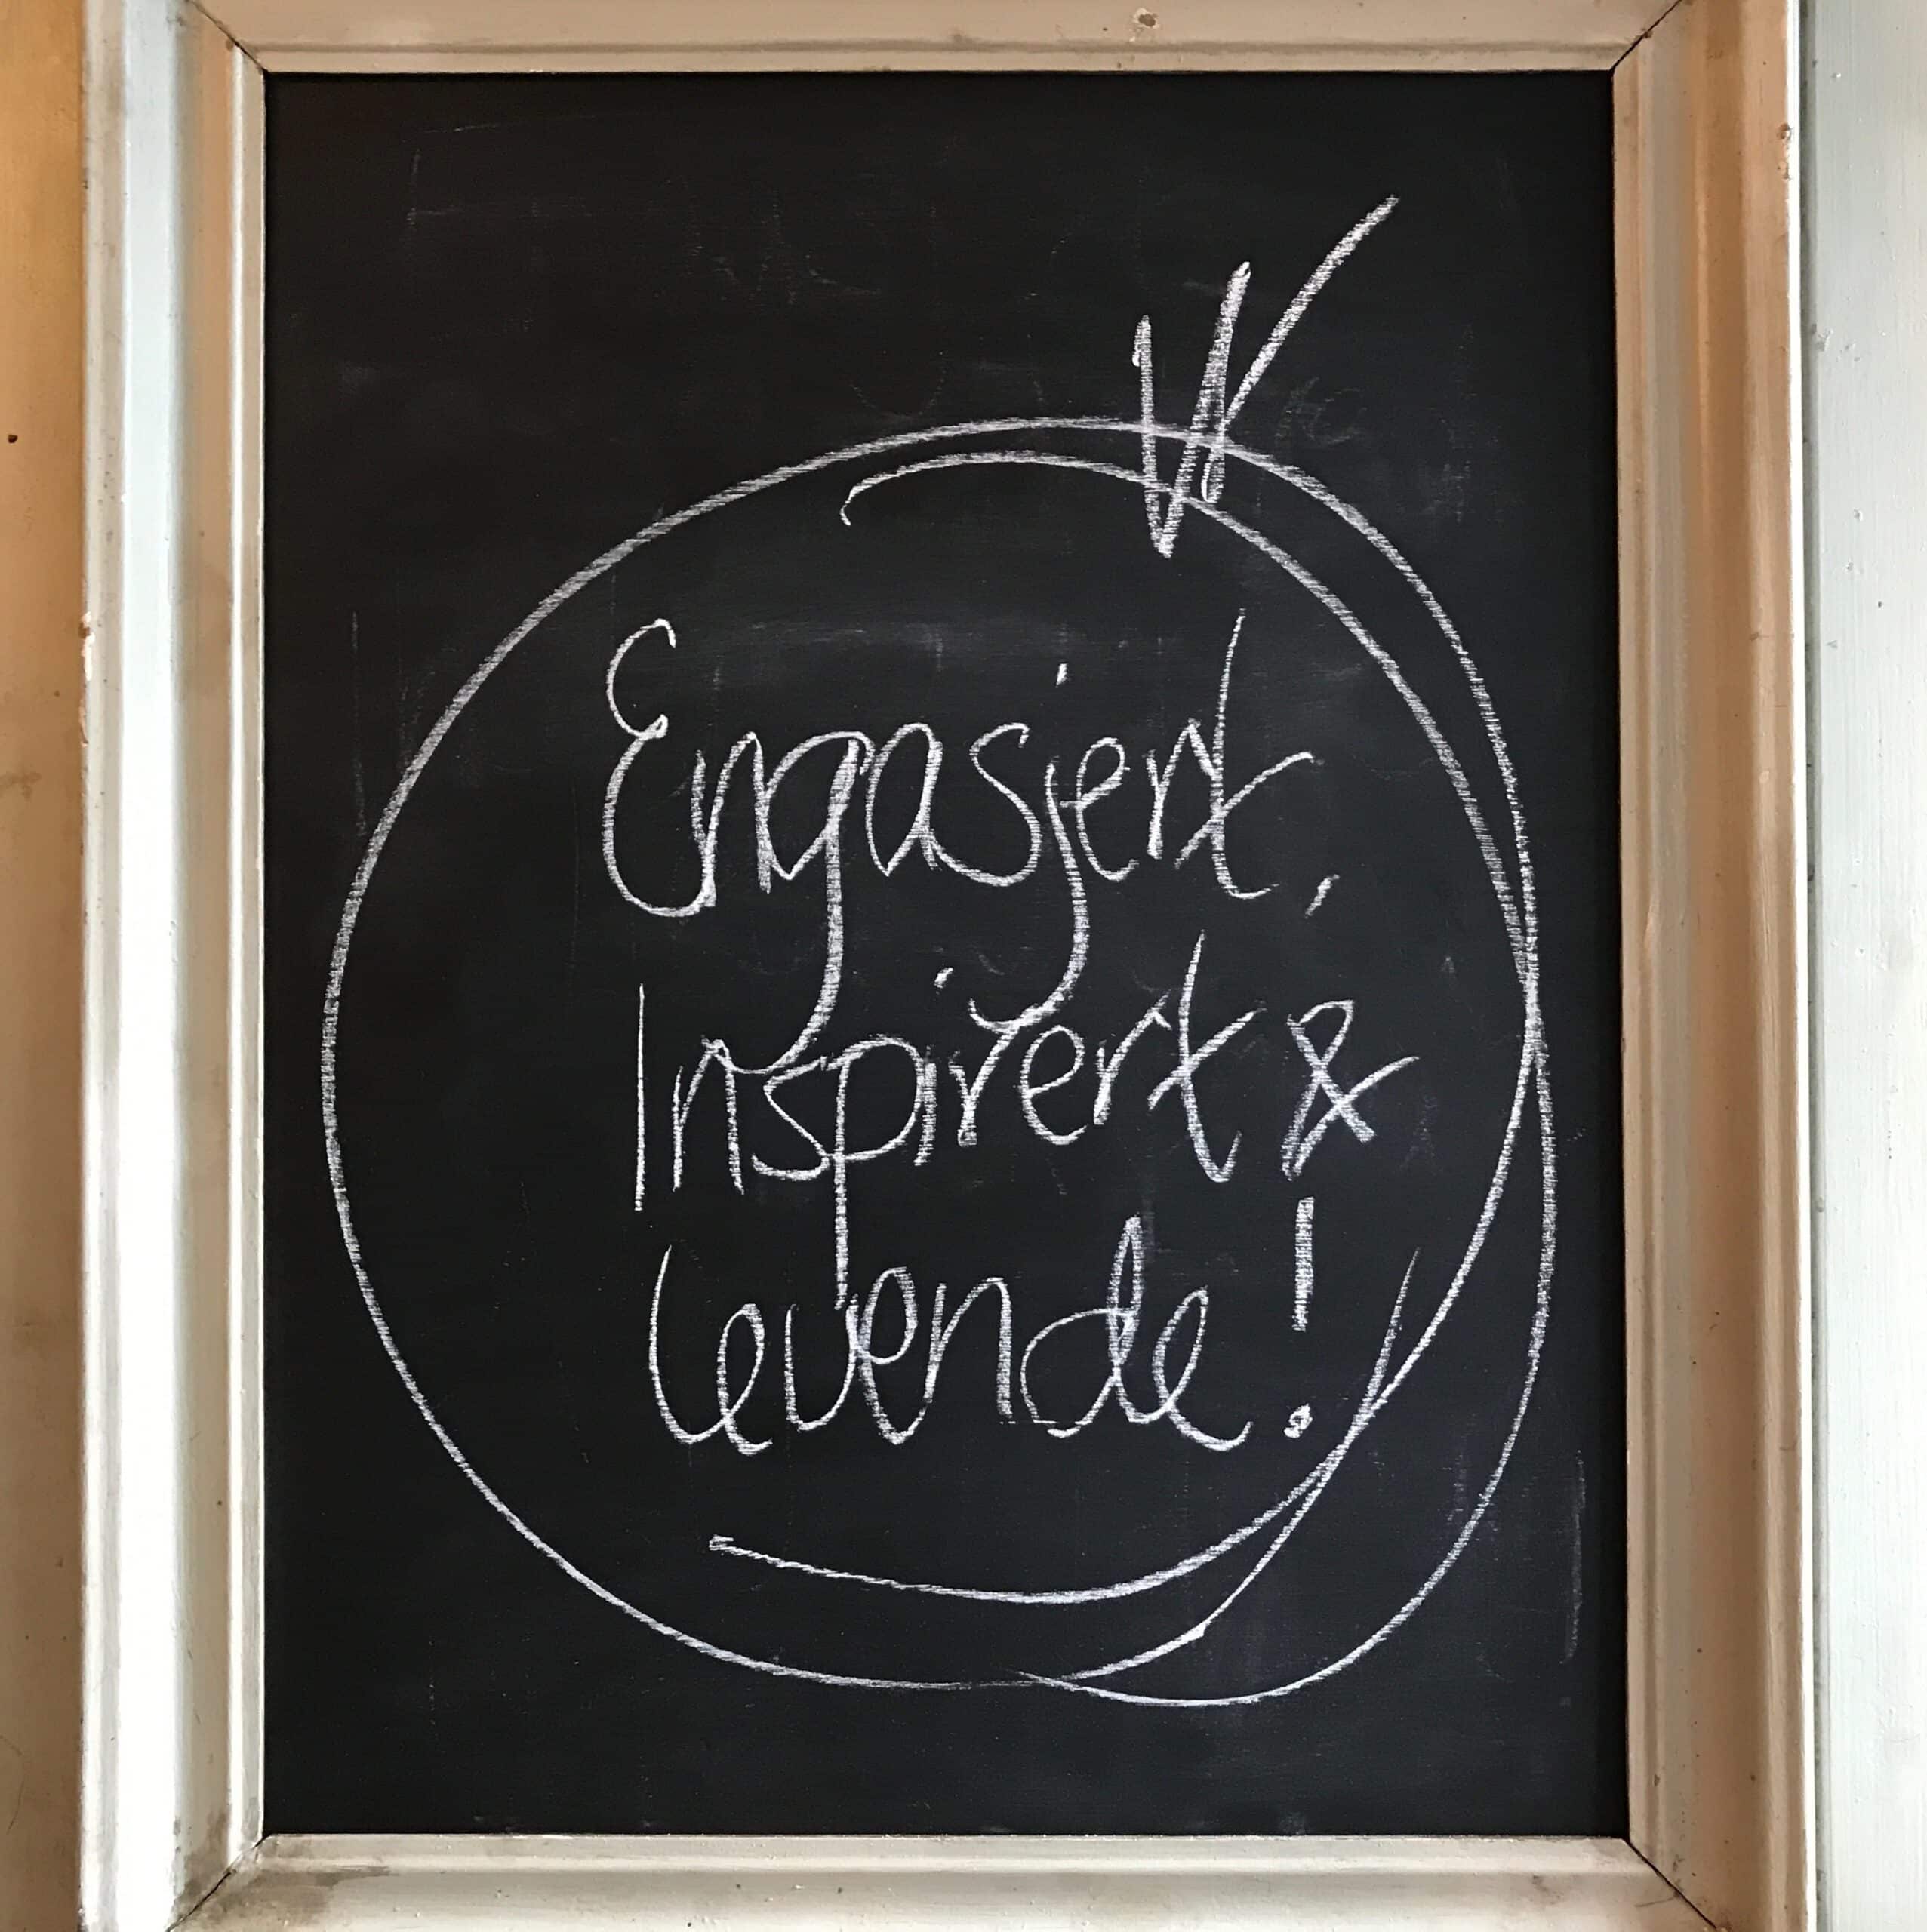 Engasjert,
Inspirert &
levende!